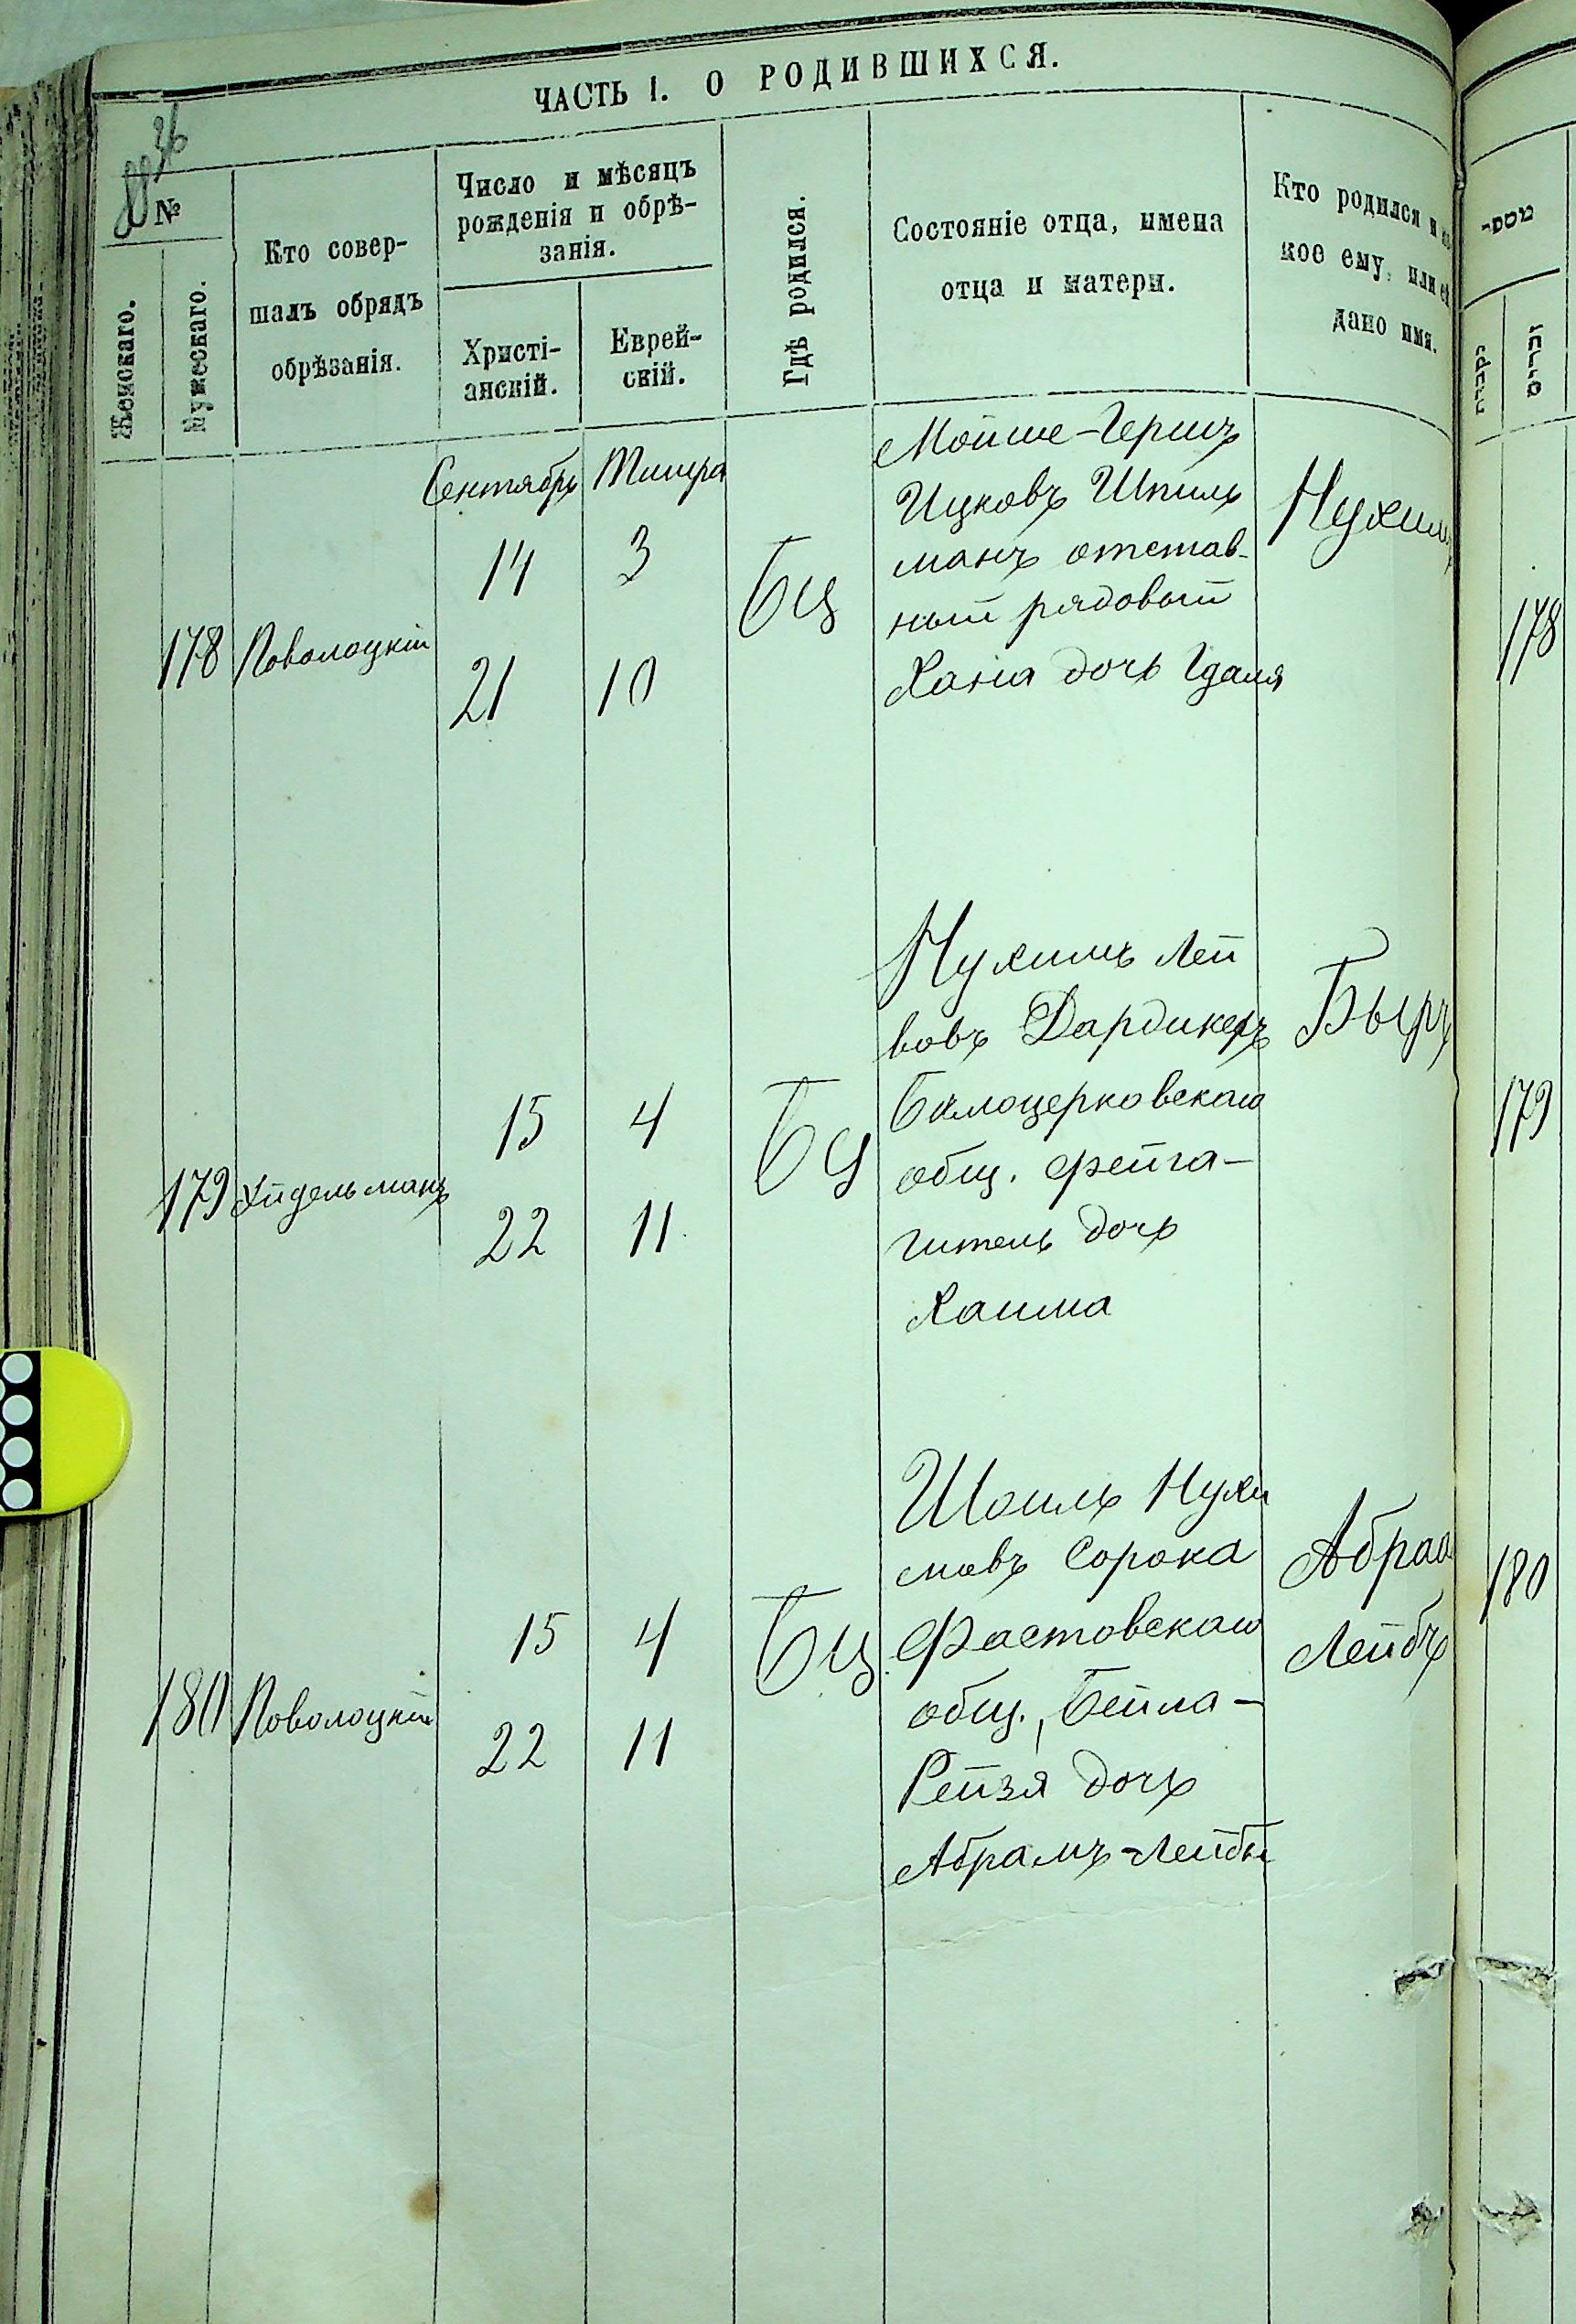 ЧАСТЬ I. О РОДИВШИХСЯ.
36
№
Женскаго.
Мужескаго.
Кто совер-
шалъ обрядъ
обрѣзанія.
Число и мѣсяцъ
рожденія и обрѣ-
занія.
Христі-
анскій.
Еврей-
скій.
Гдѣ родился.
Состояніе отца, имена
отца и матери.
Кто родился и
кое ему, или
дано имя.
178
Поволоцкій
Сентябрь
14
21
Тишра
3
10
БЦ
Мойше-Гершъ
Ицковъ Шпиль
манъ отстав-
ный рядовый
Хана дочь Гдаля
Нухимъ
179
Эйдельманъ
15
22
4
11
БЦ
Нухимъ Лей
бовъ Дардикеръ
Бѣлоцерковскаго
общ. Фейга-
Гитель дочь
Хаима
Быръ
180
Поволоцкій
15
22
4
11
БЦ
Шоиль Нухи
мовъ Сорока
Фастовскаго
общ., Бейла-
Рейзя дочь
Абрамъ-Лейбы
Абрам
Лейбъ
מספר
נקבות
זכרים
178
179
180